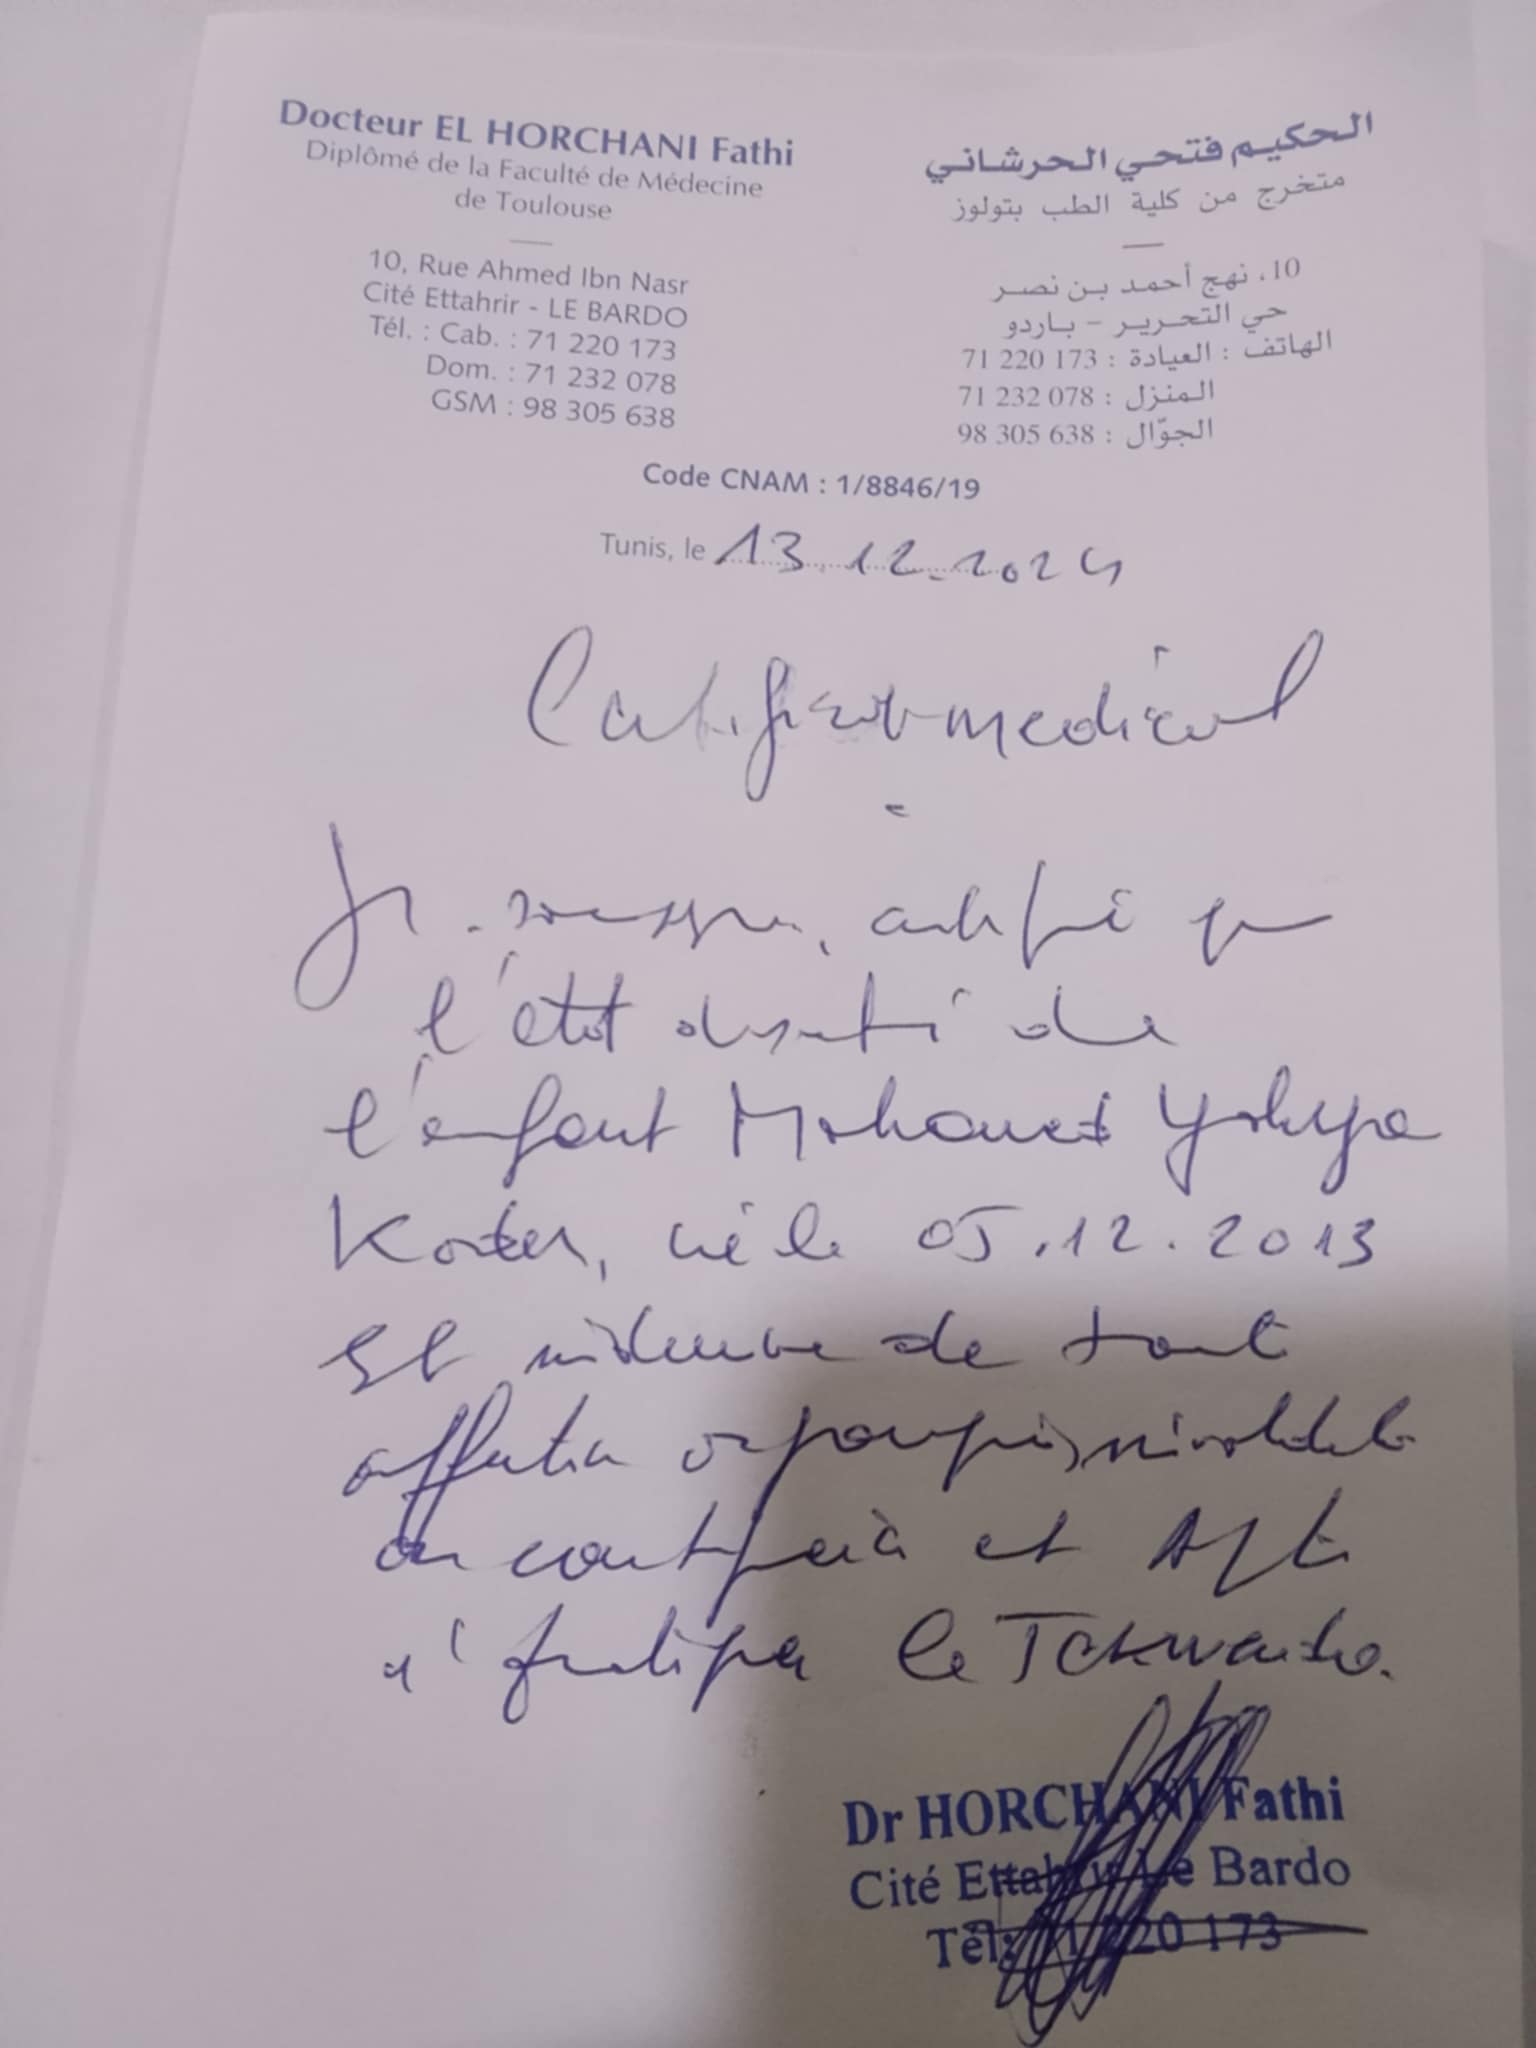 Docteur EL HORCHANI Fathi
Diplômé de la Faculté de Médecine
de Toulouse
10, Rue Ahmed Ibn Nasr
Cité Ettahrir - LE BARDO
Tél. : Cab. : 71 220 173
Dom. : 71 232 078
GSM : 98 305 638
الحكيم فتحي الحرشاني
متخرج من كلية الطب بتولوز
10، نهج أحمد بن نصر
حي التحرير - باردو
الهاتف : العيادة : 173 220 71
المنزل : 078 232 71
الجوّال : 638 305 98
Code CNAM : 1/8846/19
Tunis, le 13.12.2024
Certificat médical
Je soussigné, certifie que
l'état de santé de
l'enfant Mohamed Yahya
né le 05.12.2013
de toute
affection
et Apte
le Tekwando.
Dr HORCHANI Fathi
Cité Ettahrir Le Bardo
Tél: 71 220 173